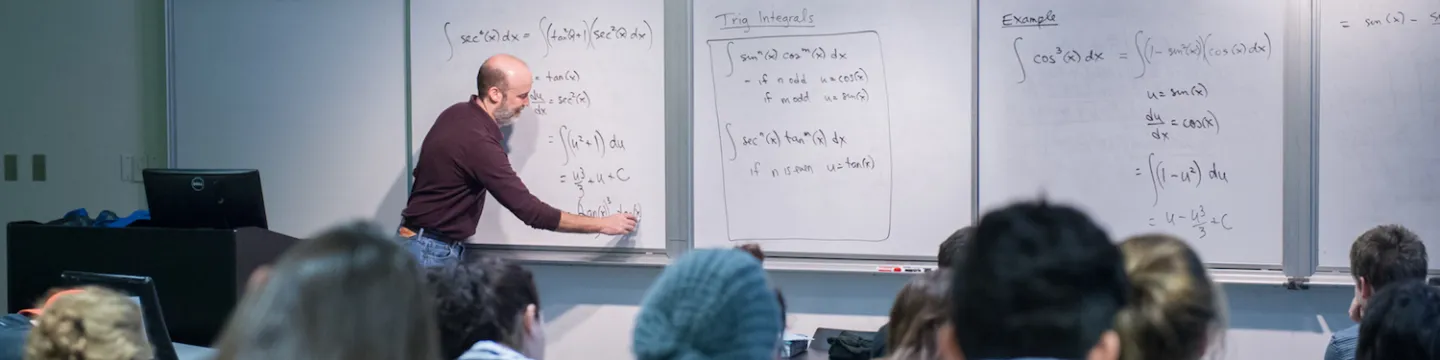 ∫ sec⁴(x) dx = ∫(tan²(x)+1)(sec²(x) dx)
= tan(x)
du/dx = sec²(x)
= ∫(u²+1) du
= u³/3 + u + C
Trig Integrals
∫ sinⁿ(x) cosᵐ(x) dx
- if n odd u = cos(x)
if m odd u = sin(x)
∫ secⁿ(x) tanᵐ(x) dx
if n is even u = tan(x)
Example
∫ cos³(x) dx = ∫(1 - sin²(x))(cos(x) dx)
u = sin(x)
du/dx = cos(x)
= ∫(1 - u²) du
= u - u³/3 + C
= sin(x) -
DELL